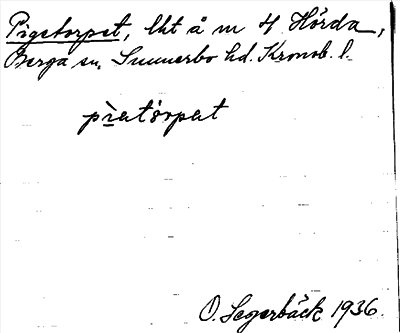 Pigetorpet, lht å m 4 Hörda,
Berga sn, Sunnerbo hd. Kronob. l.
pìatòrpat
O. Segerbäck 1936.